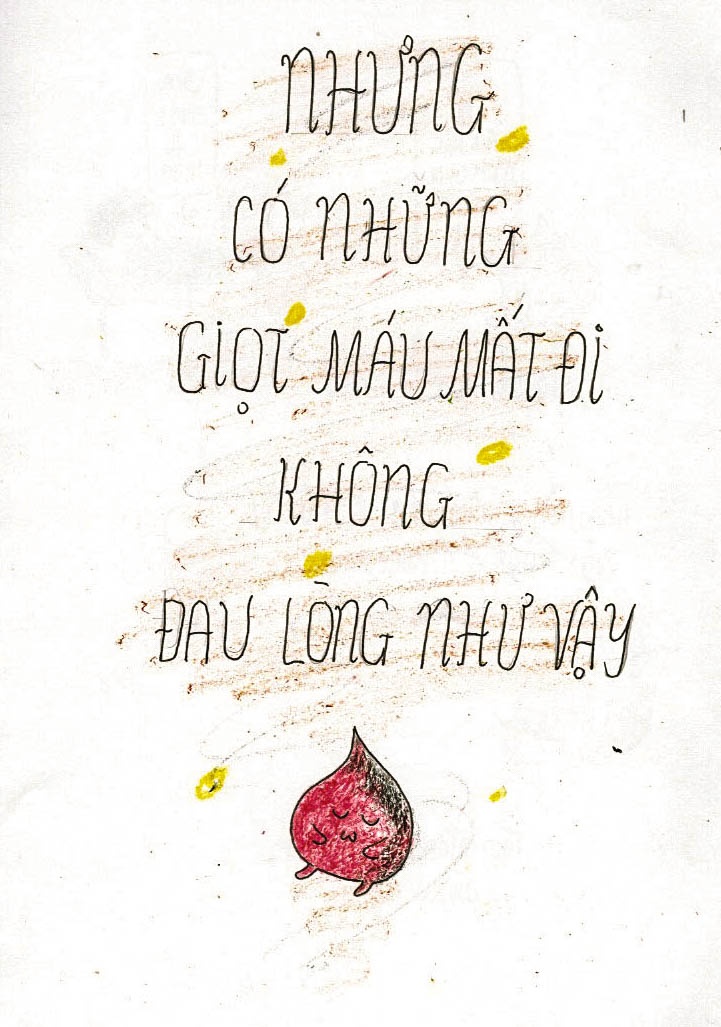 NHƯNG
CÓ NHỮNG
GIỌT MÁU MẤT ĐI
KHÔNG
ĐAU LÒNG NHƯ VẬY